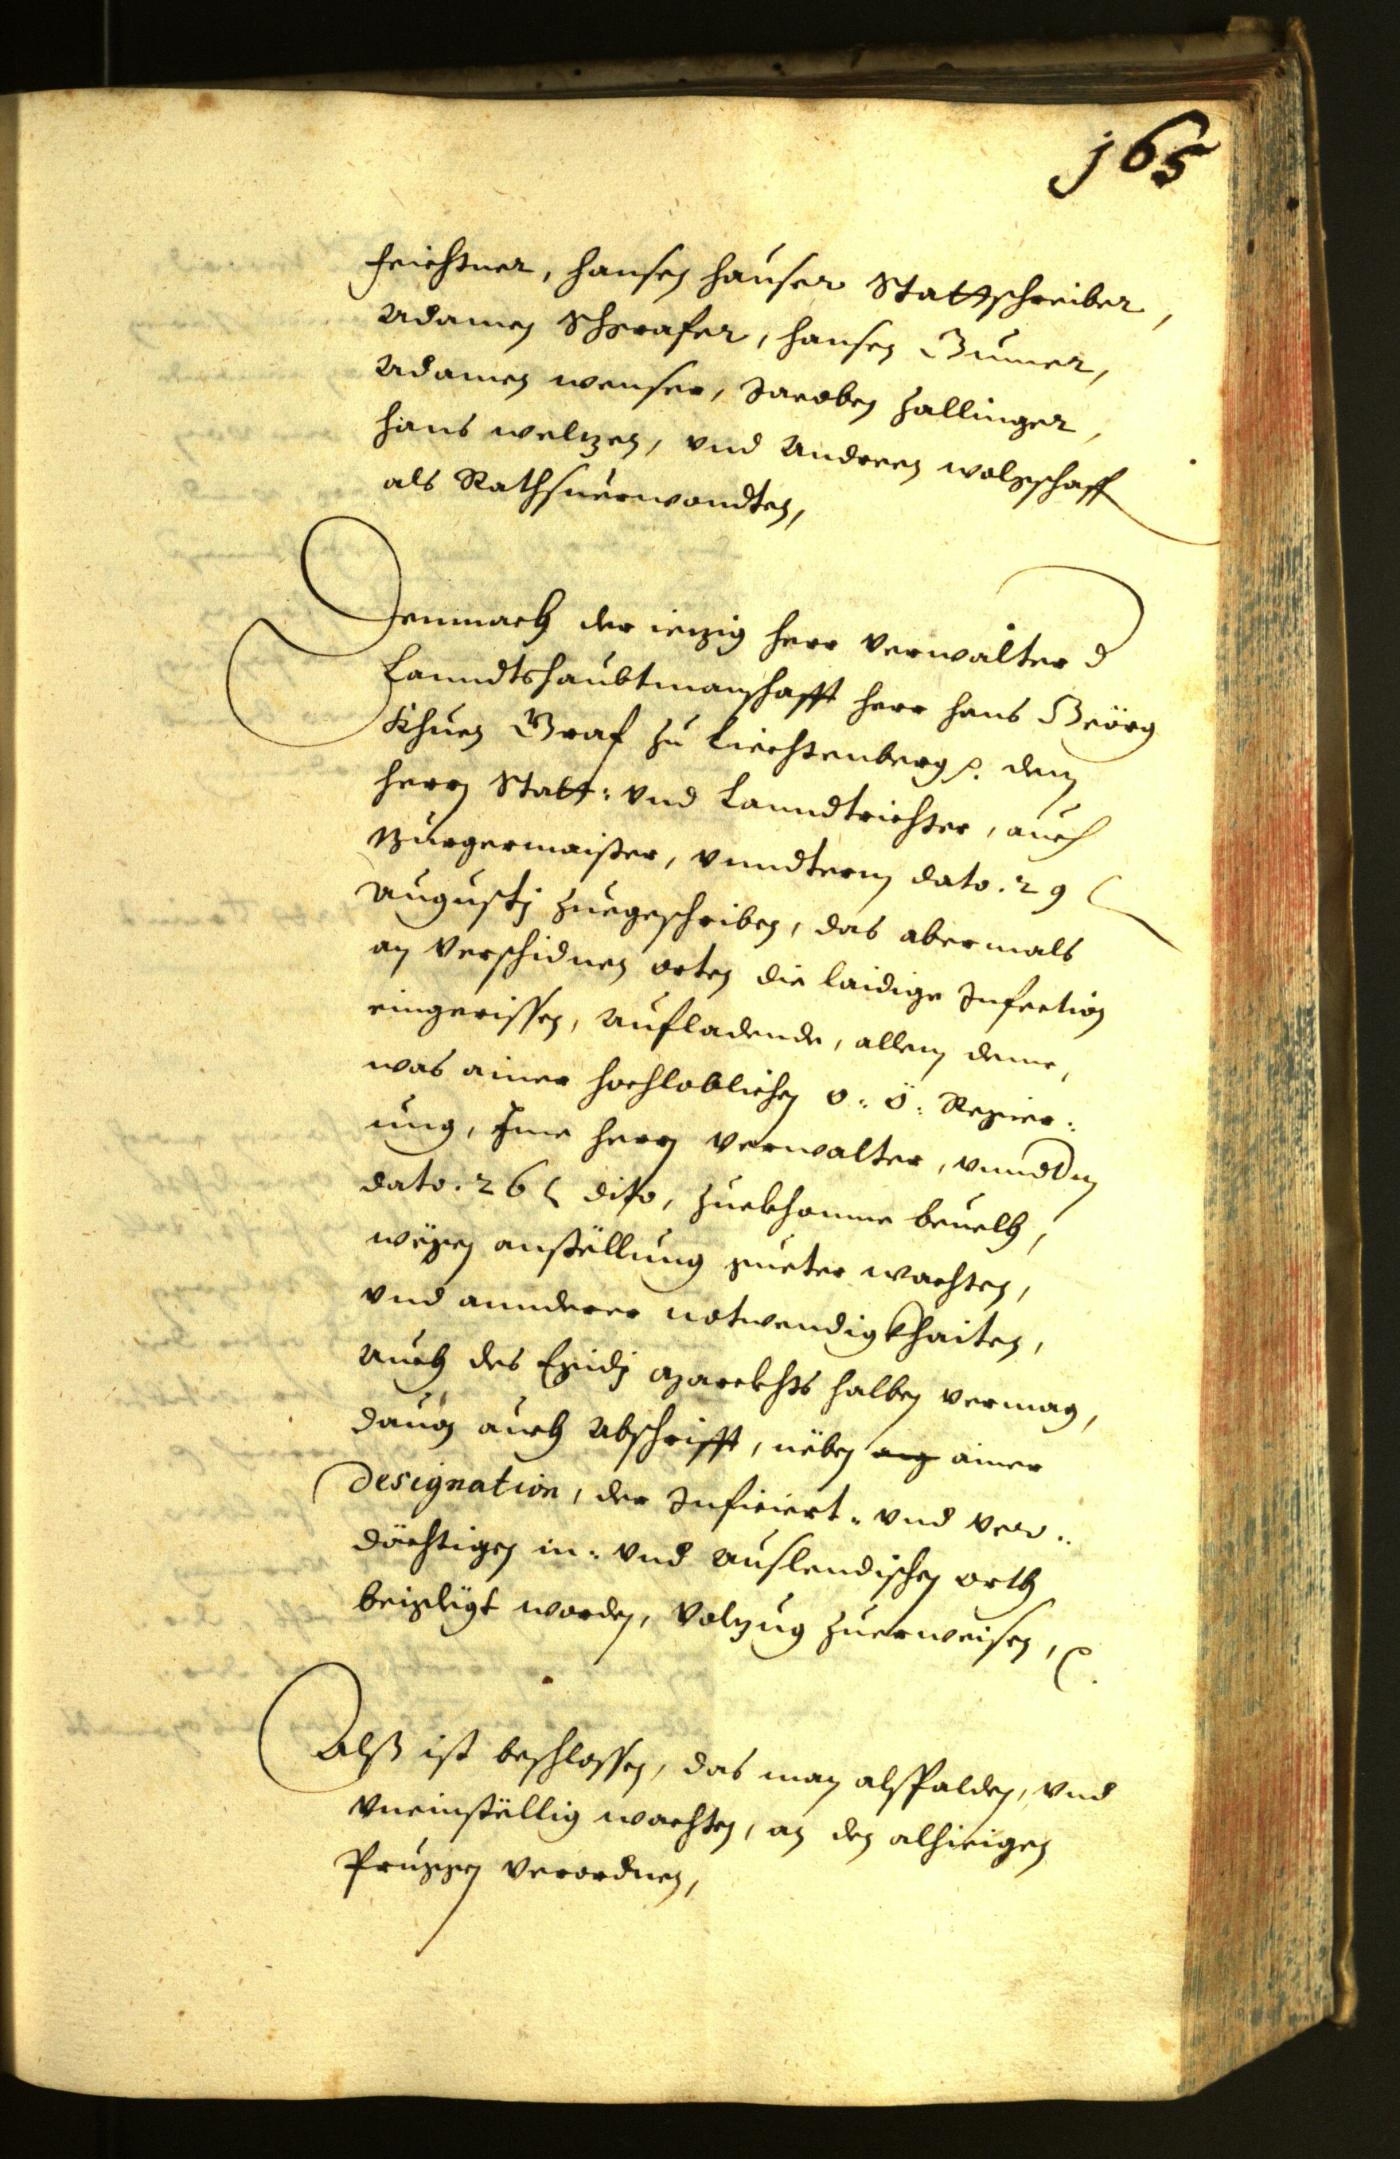 165
Feichtner, Hansen Hauser Stattschreiber,
Adamen Schrafer, Hansen Gumer,
Adamen Wenser, Jacoben Zallinger,
Hans Weltzen, vnd Anderen
als Rathsuerwondten,
Demnach der ietzig Herr Verwalter d
Lanndtshaubtmanschafft Herr Hans Geörg
Khuen Graf zu Liechtenberg etc. dem
Herrn Statt: vnd Lanndtrichter, auch
Burgermaister, vnnderm dato. 29
Augustj zuegeschriben, das abermals
an verschidnen orten die laidige Infection
eingerissen, Aufladende, allem deme,
was ainer hochloblichen O: Ö: Regier:
ung, Ime Herrn Verwalter, vnnderm
dato. 26 dito, zuekhomme beuelh,
wegen anstellung gueter wachten,
vnd annderer notwendigkhaiten,
Auch des Egidj Marckhts halben vermag,
dauon auch Abschrifft, neben ainer
Designation, der Inficiert- vnd ver-
dächtigen in- vnd Auslendischen orth
beigelegt worden, Volzug zuerweisen, etc.
Alß ist beschlossen, das man alspalden, vnd
vneinstellig wachten, an den alhieigen
Pruggen verordnen,